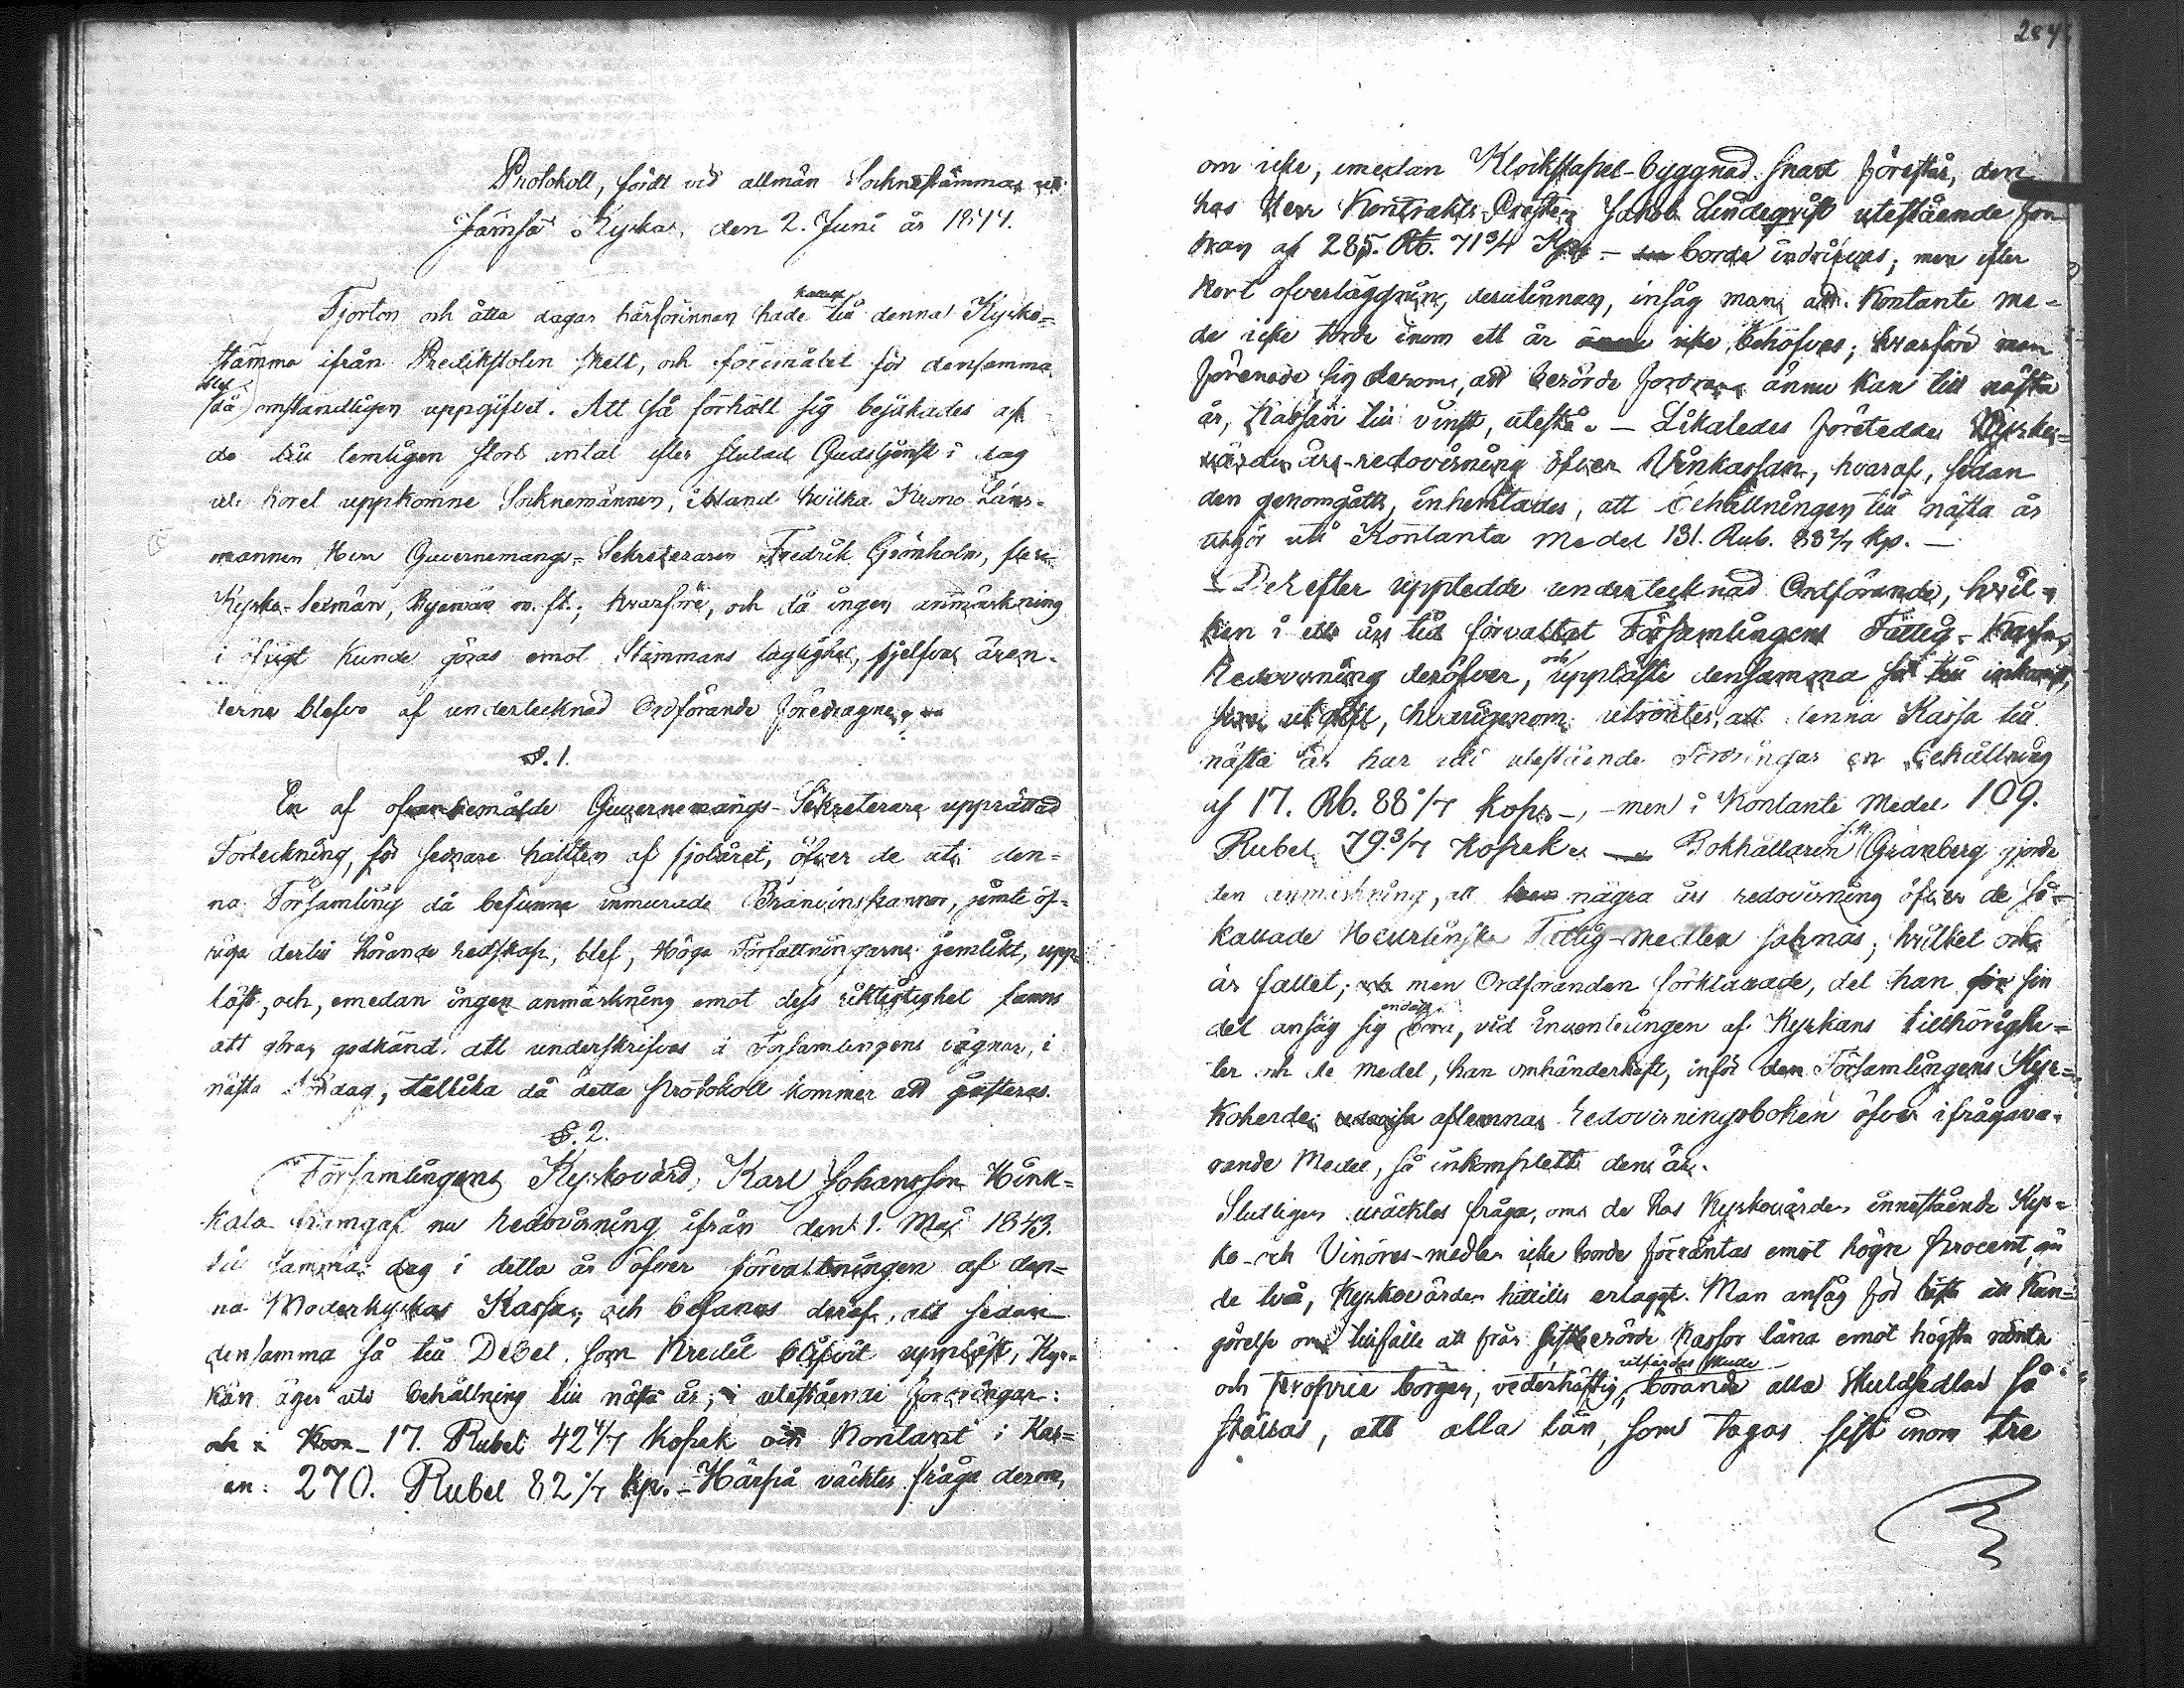 Protokoll, fördt vid allmän Socknestämma uti
Jämsä Kyrka, den 2. Juni år 1844.
Fjorton och åtta dagar härförinnan hade kallelse till denna Kyrko=
stämma ifrån Predikstolen skett, och föremålet för densamma
blef då omständligen uppgifvet. Att så förhöll sig bejakades af
de till temligen stort antal efter slutad Gudstjenst i dag
uti koret uppkomne Socknemännen, ibland hvilka Krono Läns-
mannen Herr Guvernements-Sekreteraren Fredrik Grönholm, flere
Kyrko-Sexmän, Byemän m. fl.; hvarföre, och då ingen anmärkning
i öfrigt kunde göras emot Stämmans laglighet, sjelfva ären-
derna blefvo af undertecknad Ordförande föredragne,
§. 1.
En af ofvanbemälde Guvernements-Sekreterare upprättad
Förteckning, för sednare hälften af sjolåret, öfver de uti den=
na Församling då befunne inmurade Bränvinspannor, jemte öf=
riga dertill hörande redskap, blef, Höga Författningarne jemlikt, upp=
läst, och, emedan ingen anmärkning emot dess riktigtighet fanns
att göras, godkänd att underskrifvas å Församlingens vägnar, i
nästa Söndag, tillika då detta protokoll kommer att justeras.
§. 2.
Församlingens Kyrkovärd, Karl Johansson Hink=
kala framgaf nu redovisning ifrån den 1. Maj 1843.
till samma dag i detta år öfver förvaltningen af den=
na Moderkyrkas Kassa, och befanns deraf, att sedan
densamma så till Debet som Kredit blifvit uppläst, Kyr=
kan äger uti behållning till nästa år, i utestående fordringar:
17. Rubel 42 4/7 kopek och Kontant i Kas=
an: 270. Rubel 82 2/7 kp. – Härpå väcktes fråga derom,
284
om icke, emedan Klockstapel-byggnad snart förestår, den
hos Herr Kontrakts-Prosten Jakob Lindeqvist utestående for
dran af 285. Rb. 71 3/4 Kp. – borde indrifvas; men efter
kort öfverläggning, derutinnan, insåg man att Kontante me-
de icke torde inom ett år icke behöfvas; hvarföre man
förenade sig derom, att berörde fordran ännu kan till nästa
år, Kassan till vinst, utestå. – Likaledes företedde Kyrko=
värden års-redovisning öfver Vinkassan, hvaraf, sedan
den genomgåtts, inhemtades, att behållningen till nästa år
utgör uti Kontanta medel 131. Rub. 88 2/7 kp. –
Derefter upptedde undertecknad Ordförande, hvil=
ken i ett års tid förvaltat Församlingens Fattig-Kassa,
Redovisning deröfver, och uppläste densamma så till inkomst,
som utgift, hvarigenom utröntes, att denna Kassa till
nästa år har uti utestående fordringar en behållning
af 17. Rb. 88 4/7 kop. –, – men i Kontante Medel 109.
Rubel 79 3/7 Kopek. – Bokhållaren Granberg gjorde
den anmärkning, att några års redovisning öfver de så
kallade Heurlinska Fattig-medlen saknas; hvilket ock
är fallet; men Ordföranden förklarade, det han för sin
del ansåg sig endast böra, vid inventeringen af Kyrkans tillhörighe=
ter och de medel, han omhänderhaft, inför Församlingens Kyr=
koherde aflemna redovisningsboken öfver ifrågava-
rande Medel, så inkomplett den är.
Slutligen väcktes fråga, om de hos Kyrkovärden innestående Kyr=
ko- och Vinöres-medlen icke borde förräntas emot högre procent, än
de två, Kyrkovärden hittills erlagt. Man ansåg för bäst att kun=
görelse om tillfälle att från sistberörde kassor låna emot högsta ränta
och proprie borgen, vederhäftig, utfärdas skulle – börande alla skuldsedlar så
ställas, att alla lån, som tagas sist inom tre